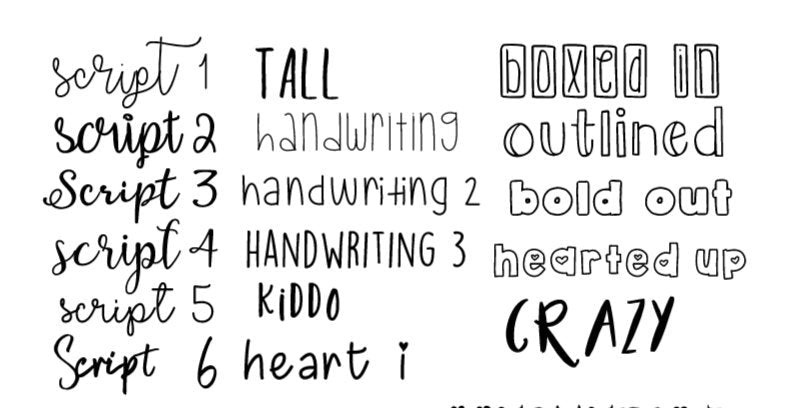 script 1
script 2
Script 3
script 4
script 5
Script 6
TALL
handwriting
handwriting 2
HANDWRITING 3
KiDDO
heart i
boxed in
outlined
bold out
hearted up
CRAZY